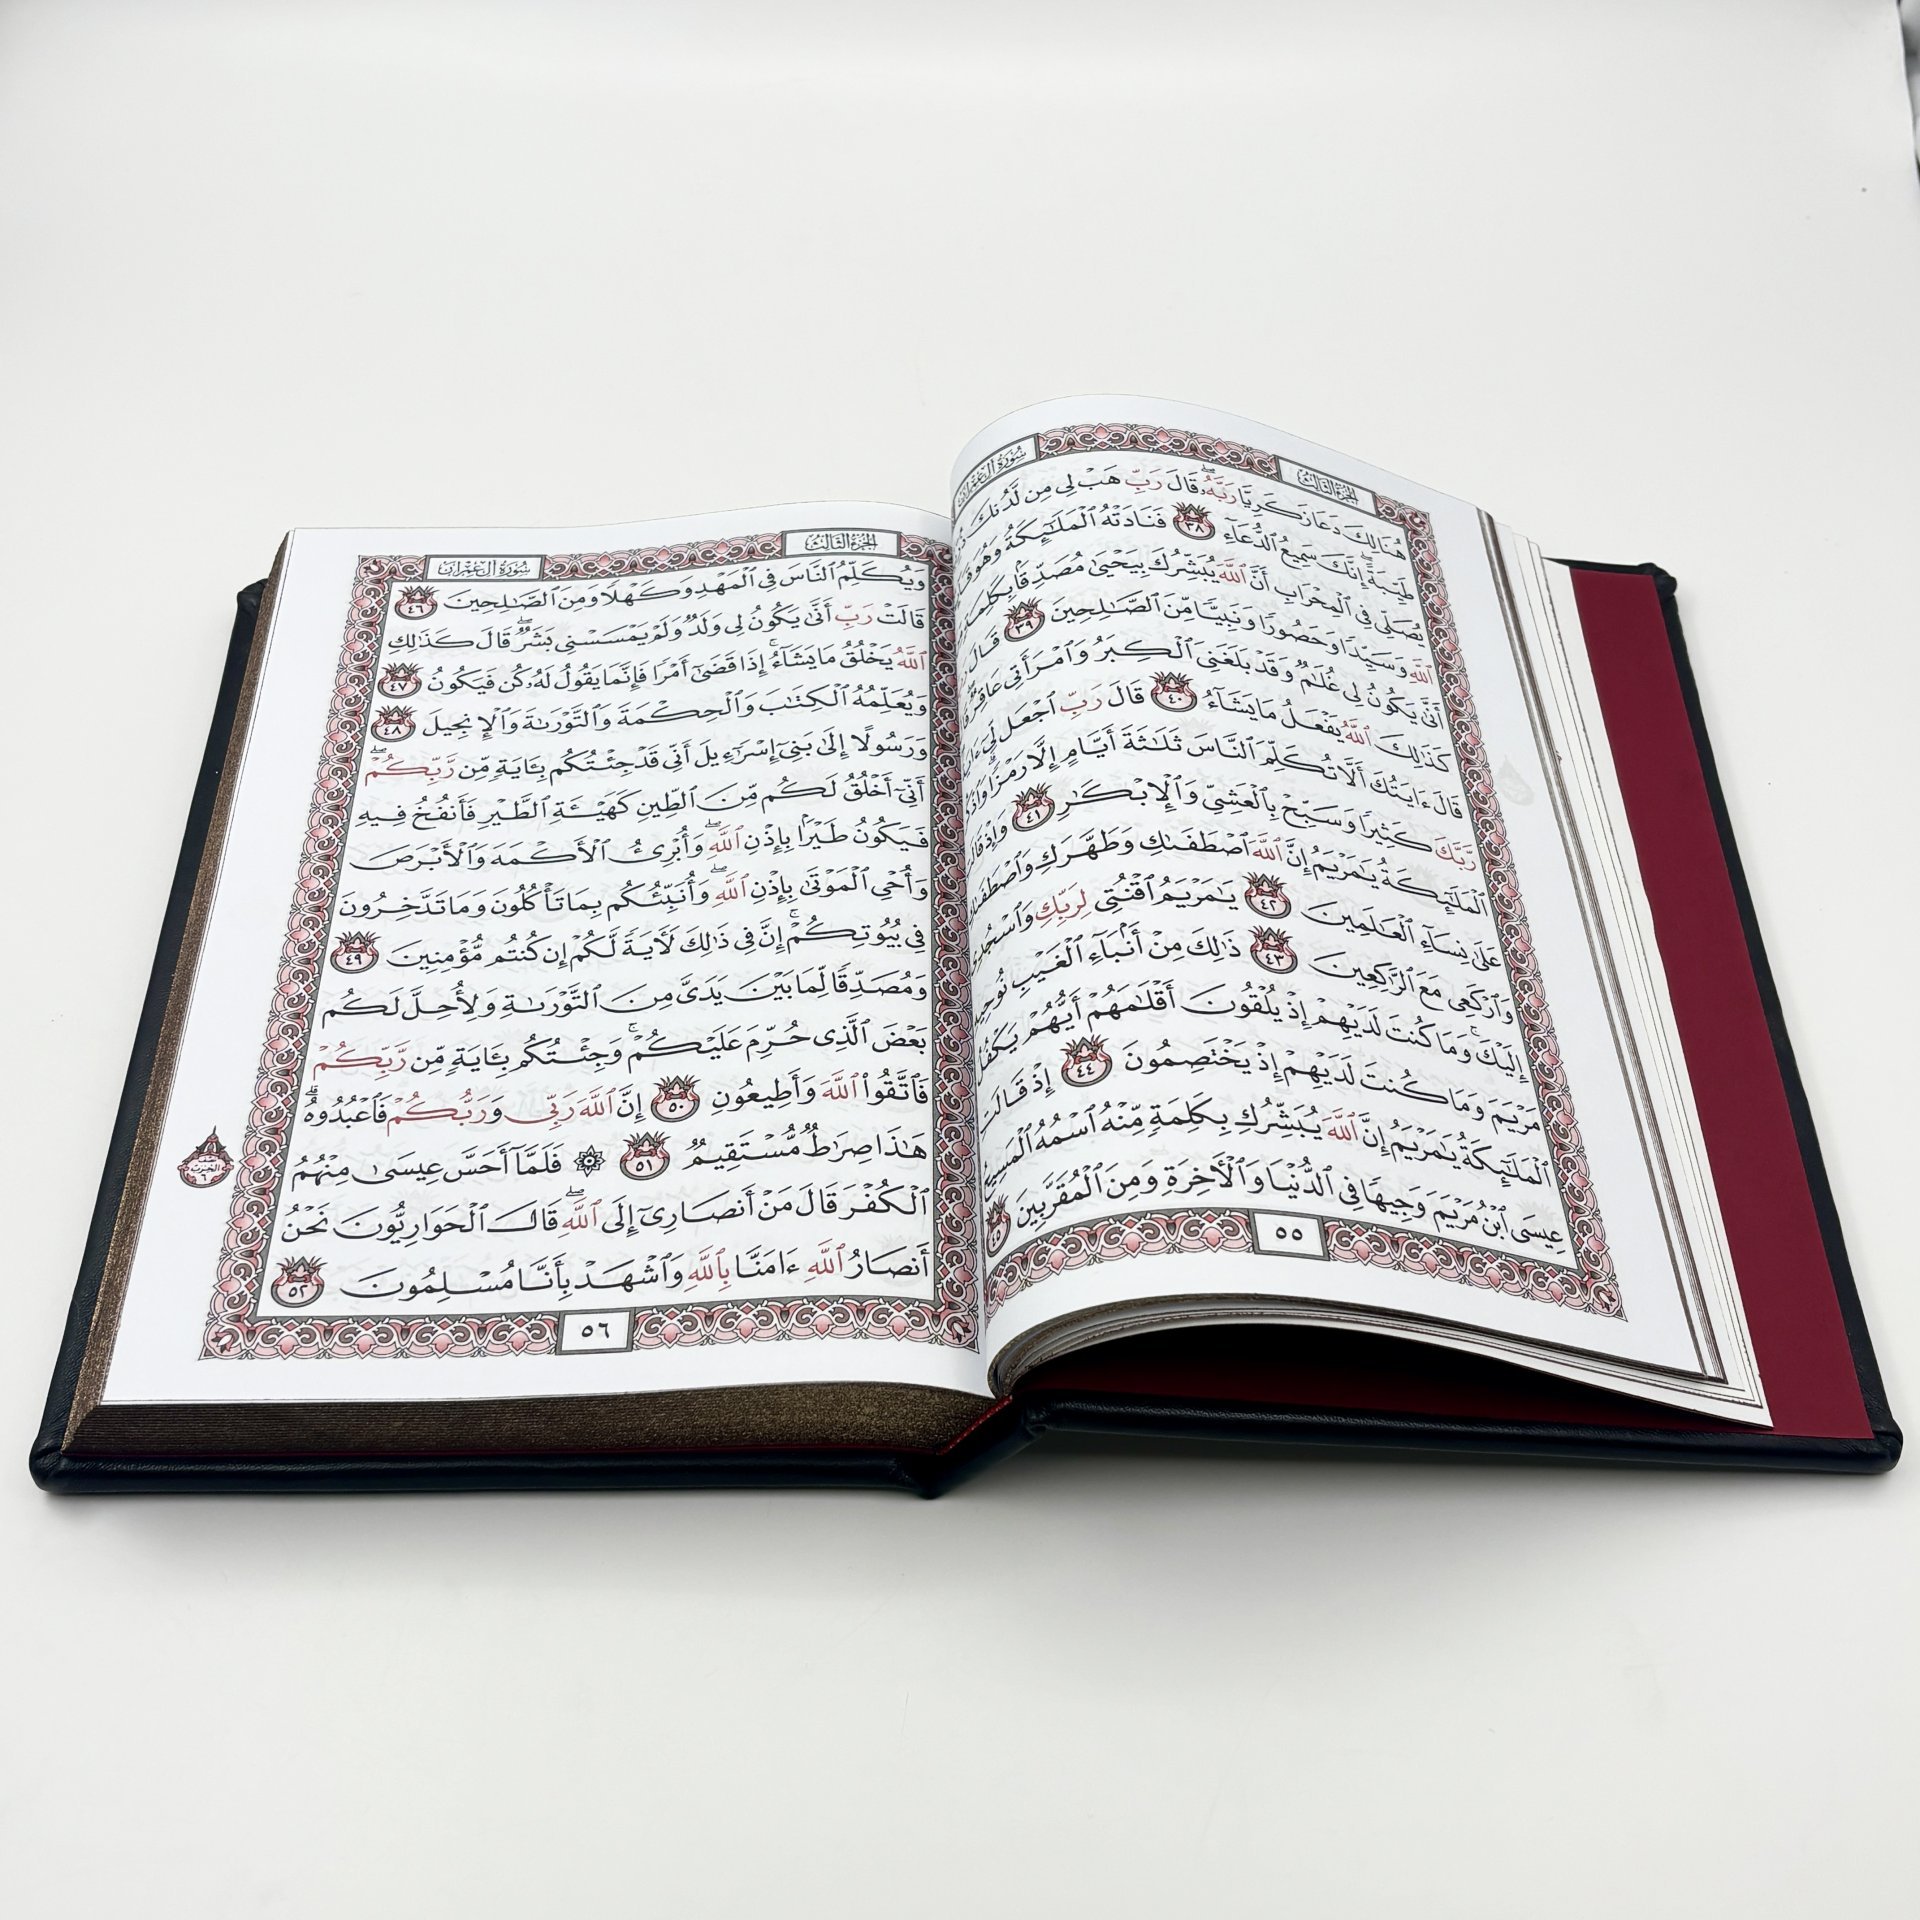 سُورَةُ آلِ عِمْرَان
الجُزْءُ الثَّالِثُ
هُنَالِكَ دَعَا زَكَرِيَّا رَبَّهُۥۖ قَالَ رَبِّ هَبْ لِى مِن لَّدُنكَ
طَيِّبَةًۖ إِنَّكَ سَمِيعُ ٱلدُّعَآءِ ٣٨ فَنَادَتْهُ ٱلْمَلَـٰٓئِكَةُ وَهُوَ
يُصَلِّى فِى ٱلْمِحْرَابِ أَنَّ ٱللَّهَ يُبَشِّرُكَ بِيَحْيَىٰ مُصَدِّقًۢا بِكَلِمَةٍ
ٱللَّهِ وَسَيِّدًا وَحَصُورًا وَنَبِيًّا مِّنَ ٱلصَّـٰلِحِينَ ٣٩ قَالَ
أَنَّىٰ يَكُونُ لِى غُلَـٰمٌ وَقَدْ بَلَغَنِىَ ٱلْكِبَرُ وَٱمْرَأَتِى عَاقِرٌۖ
كَذَٰلِكَ ٱللَّهُ يَفْعَلُ مَا يَشَآءُ ٤٠ قَالَ رَبِّ ٱجْعَل لِّىٓ
قَالَ ءَايَتُكَ أَلَّا تُكَلِّمَ ٱلنَّاسَ ثَلَـٰثَةَ أَيَّامٍ إِلَّا رَمْزًاۗ
رَّبَّكَ كَثِيرًا وَسَبِّحْ بِٱلْعَشِىِّ وَٱلْإِبْكَـٰرِ ٤١ وَإِذْ قَالَتِ
ٱلْمَلَـٰٓئِكَةُ يَـٰمَرْيَمُ إِنَّ ٱللَّهَ ٱصْطَفَىٰكِ وَطَهَّرَكِ وَٱصْطَفَىٰكِ
عَلَىٰ نِسَآءِ ٱلْعَـٰلَمِينَ ٤٢ يَـٰمَرْيَمُ ٱقْنُتِى لِرَبِّكِ وَٱسْجُدِى
وَٱرْكَعِى مَعَ ٱلرَّٰكِعِينَ ٤٣ ذَٰلِكَ مِنْ أَنۢبَآءِ ٱلْغَيْبِ نُوحِيهِ
إِلَيْكَۚ وَمَا كُنتَ لَدَيْهِمْ إِذْ يُلْقُونَ أَقْلَـٰمَهُمْ أَيُّهُمْ يَكْفُلُ
مَرْيَمَ وَمَا كُنتَ لَدَيْهِمْ إِذْ يَخْتَصِمُونَ ٤٤ إِذْ قَالَتِ
ٱلْمَلَـٰٓئِكَةُ يَـٰمَرْيَمُ إِنَّ ٱللَّهَ يُبَشِّرُكِ بِكَلِمَةٍ مِّنْهُ ٱسْمُهُ ٱلْمَسِيحُ
عِيسَى ٱبْنُ مَرْيَمَ وَجِيهًا فِى ٱلدُّنْيَا وَٱلْـَٔاخِرَةِ وَمِنَ ٱلْمُقَرَّبِينَ ٤٥
٥٥
سُورَةُ آلِ عِمْرَان
الجُزْءُ الثَّالِثُ
وَيُكَلِّمُ ٱلنَّاسَ فِى ٱلْمَهْدِ وَكَهْلًا وَمِنَ ٱلصَّـٰلِحِينَ ٤٦
قَالَتْ رَبِّ أَنَّىٰ يَكُونُ لِى وَلَدٌ وَلَمْ يَمْسَسْنِى بَشَرٌۖ قَالَ كَذَٰلِكِ
ٱللَّهُ يَخْلُقُ مَا يَشَآءُۚ إِذَا قَضَىٰٓ أَمْرًا فَإِنَّمَا يَقُولُ لَهُۥ كُن فَيَكُونُ ٤٧
وَيُعَلِّمُهُ ٱلْكِتَـٰبَ وَٱلْحِكْمَةَ وَٱلتَّوْرَىٰةَ وَٱلْإِنجِيلَ ٤٨
وَرَسُولًا إِلَىٰ بَنِىٓ إِسْرَٰٓءِيلَ أَنِّى قَدْ جِئْتُكُم بِـَٔايَةٍ مِّن رَّبِّكُمْۖ
أَنِّىٓ أَخْلُقُ لَكُم مِّنَ ٱلطِّينِ كَهَيْـَٔةِ ٱلطَّيْرِ فَأَنفُخُ فِيهِ
فَيَكُونُ طَيْرًۢا بِإِذْنِ ٱللَّهِۖ وَأُبْرِئُ ٱلْأَكْمَهَ وَٱلْأَبْرَصَ
وَأُحْىِ ٱلْمَوْتَىٰ بِإِذْنِ ٱللَّهِۖ وَأُنَبِّئُكُم بِمَا تَأْكُلُونَ وَمَا تَدَّخِرُونَ
فِى بُيُوتِكُمْۚ إِنَّ فِى ذَٰلِكَ لَـَٔايَةً لَّكُمْ إِن كُنتُم مُّؤْمِنِينَ ٤٩
وَمُصَدِّقًا لِّمَا بَيْنَ يَدَىَّ مِنَ ٱلتَّوْرَىٰةِ وَلِأُحِلَّ لَكُم
بَعْضَ ٱلَّذِى حُرِّمَ عَلَيْكُمْۚ وَجِئْتُكُم بِـَٔايَةٍ مِّن رَّبِّكُمْ
فَٱتَّقُوا۟ ٱللَّهَ وَأَطِيعُونِ ٥٠ إِنَّ ٱللَّهَ رَبِّى وَرَبُّكُمْ فَٱعْبُدُوهُۗ
هَـٰذَا صِرَٰطٌ مُّسْتَقِيمٌ ٥١ ۞ فَلَمَّآ أَحَسَّ عِيسَىٰ مِنْهُمُ
ٱلْكُفْرَ قَالَ مَنْ أَنصَارِىٓ إِلَى ٱللَّهِۖ قَالَ ٱلْحَوَارِيُّونَ نَحْنُ
أَنصَارُ ٱللَّهِ ءَامَنَّا بِٱللَّهِ وَٱشْهَدْ بِأَنَّا مُسْلِمُونَ ٥٢
٥٦
الحزب
٦